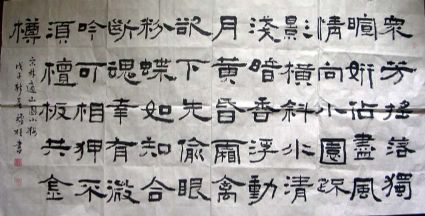 衆芳搖落獨
暄妍佔盡風
情向小園疎
影橫斜水清
淺暗香浮動
月黃昏霜禽
欲下先偷眼
粉蝶如知合
斷魂幸有微
吟可相狎不
須檀板共金
樽
宋林逋山園小梅
戊子書